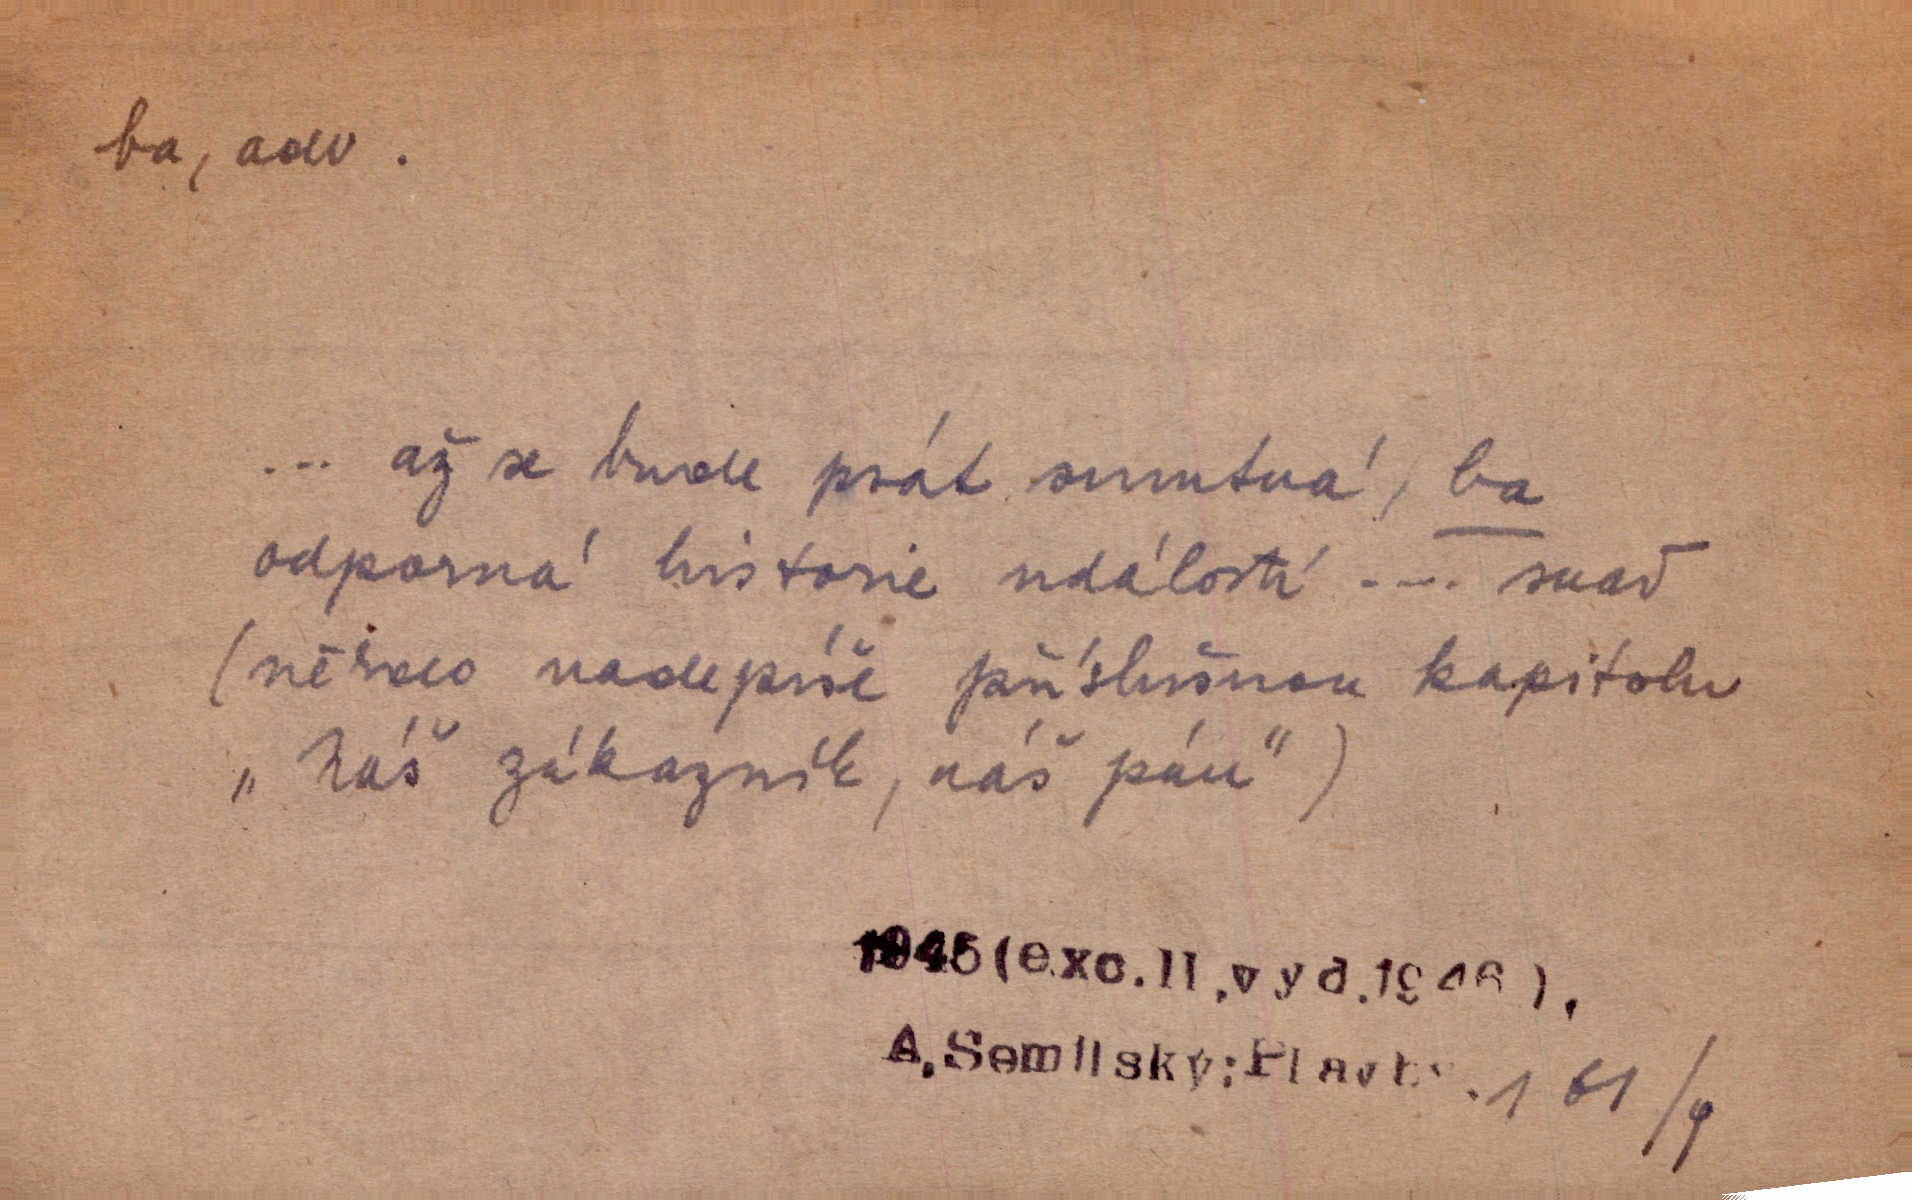 ba, adv.
... až se bude psát smutná, ba
odporná historie událostí .... snad
(někdo nadepíše příslušnou kapitolu
„Náš zákazník, náš pán")
1945 (exc. II, vyd. 1946),
A. Semilský: Plavby. 161/9